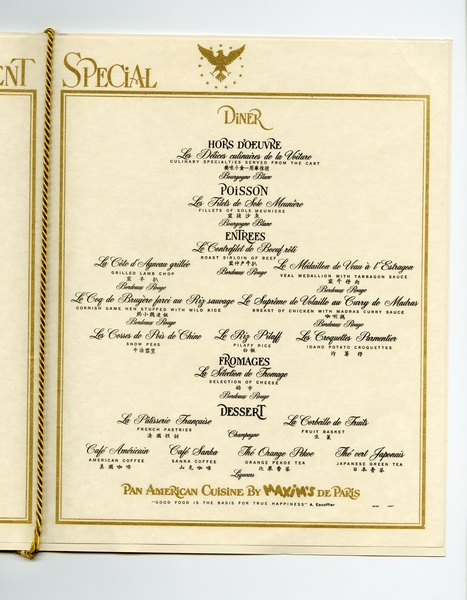 ENT
SPECIAL
DINER
HORS D'OEUVRE
Les Délices culinaires de la Voiture
CULINARY SPECIALTIES SERVED FROM THE CART
Bourgogne Blanc
POISSON
Les Filets de Sole Meunière
FILLETS OF SOLE MEUNIERE
Bourgogne Blanc
ENTREES
Le Contrefilet de Boeuf rôti
ROAST SIRLOIN OF BEEF
Bordeaux Rouge
La Côte d'Agneau grillée
GRILLED LAMB CHOP
Bordeaux Rouge
Le Médaillon de Veau à l'Estragon
VEAL MEDALLION WITH TARRAGON SAUCE
Bordeaux Rouge
Le Coq de Bruyère farci au Riz sauvage
CORNISH GAME HEN STUFFED WITH WILD RICE
Bordeaux Rouge
Le Suprème de Volaille au Curry de Madras
BREAST OF CHICKEN WITH MADRAS CURRY SAUCE
咖喱鷄
Bordeaux Rouge
Les Cosses de Pois de Chine
SNOW PEAS
Le Riz Pilaff
PILAFF RICE
Les Croquettes Parmentier
IDAHO POTATO CROQUETTES
FROMAGES
La Sélection de Fromage
SELECTION OF CHEESE
Bordeaux Rouge
DESSERT
La Pâtisserie Française
FRENCH PASTRIES
Champagne
La Corbeille de Fruits
FRUIT BASKET
生菓
Café Américain
AMERICAN COFFEE
美國咖啡
Café Sanka
SANKA COFFEE
山克咖啡
Thé Orange Pekoe
ORANGE PEKOE TEA
Thé vert Japonais
JAPANESE GREEN TEA
日本青茶
Liqueurs
PAN AMERICAN CUISINE BY MAXIM'S DE PARIS
"GOOD FOOD IS THE BASIS FOR TRUE HAPPINESS" A. Escoffier